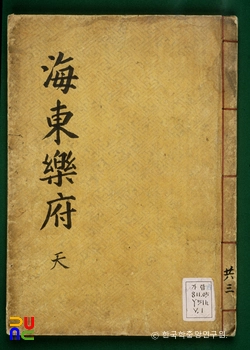 海東樂府
天
共三
가람
V.1
© 한국학중앙연구원